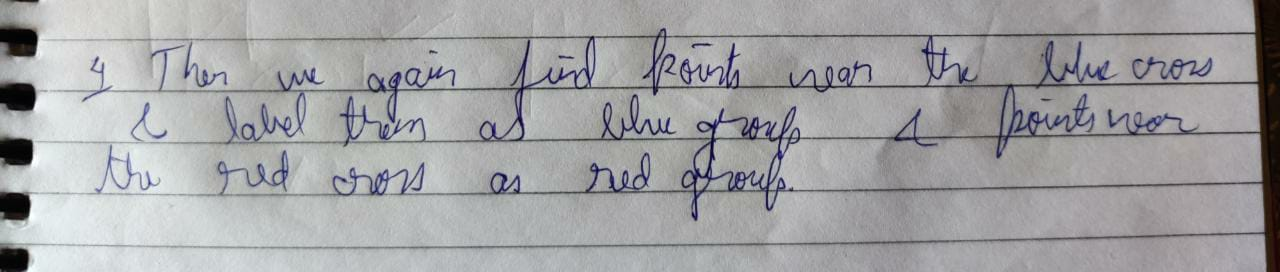 4 Then we again find points near the blue cross
& label them as blue group & points near
the red cross as red group.